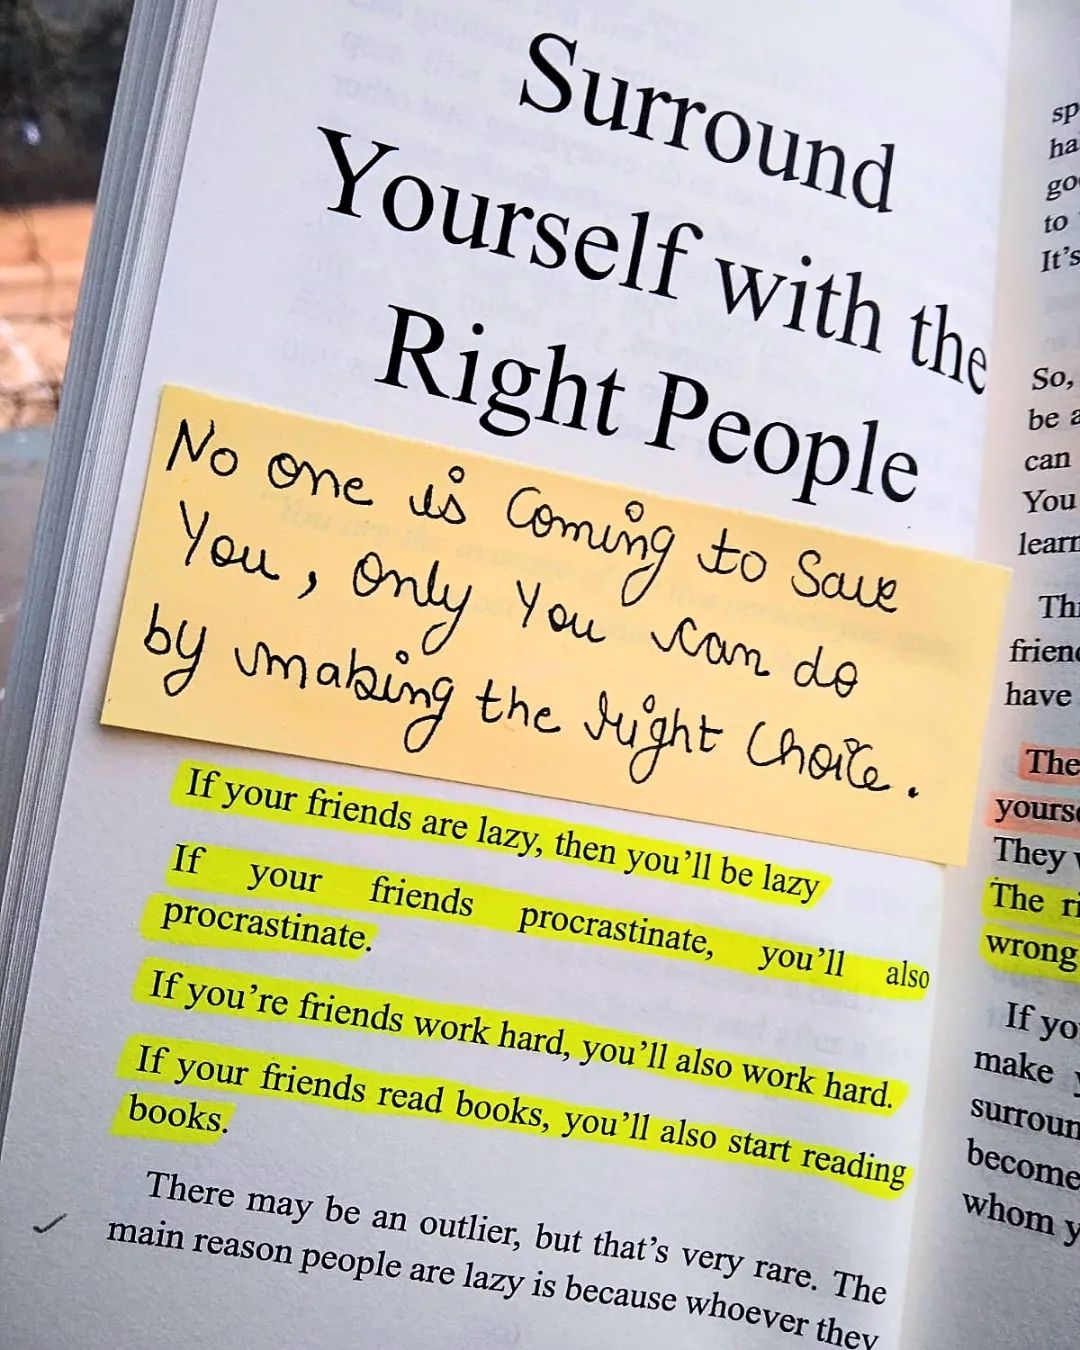 Surround
Yourself with the
Right People
No one is Coming to Save
You, only You can do
by making the right Choice.
If your friends are lazy, then you'll be lazy
If your friends procrastinate, you'll also
procrastinate.
If you're friends work hard, you'll also work hard.
If your friends read books, you'll also start reading
books.
There may be an outlier, but that's very rare. The
main reason people are lazy is because whoever they
to
It's
So,
be
can
You
friend
have
The
They
The
wrong
If
make
become
whom